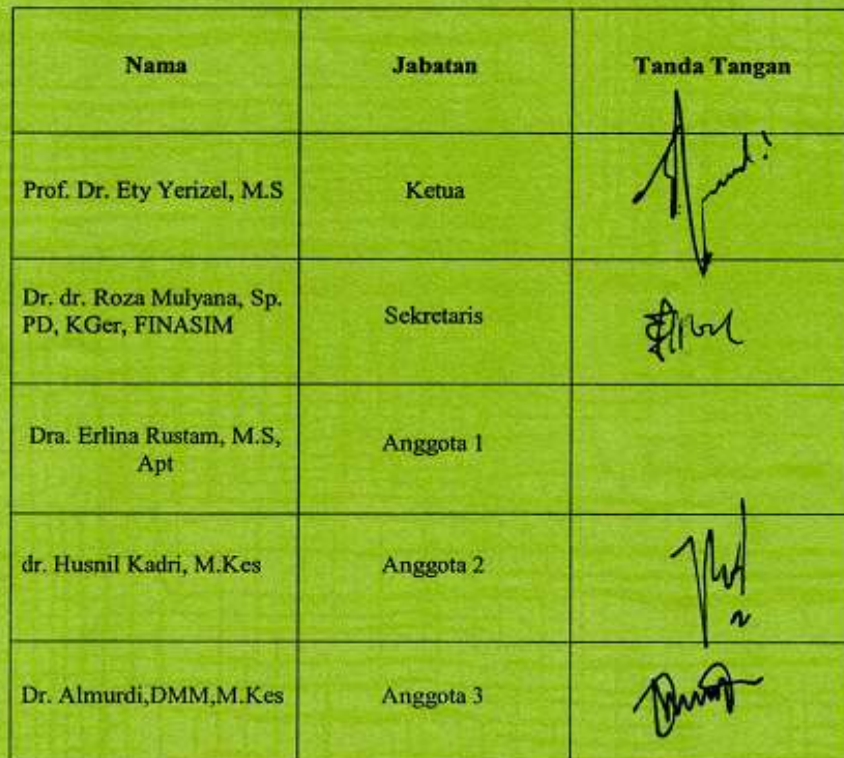 Nama Jabatan Tanda Tangan
Prof. Dr. Ety Yerizel, M.S Ketua
Dr. dr. Roza Mulyana, Sp. Sekretaris
PD, KGer, FINASIM
Dra. Erlina Rustam, M.S, Anggota 1
Apt
dr. Husnil Kadri, M.Kes Anggota 2
Dr. Almurdi,DMM,M.Kes Anggota 3